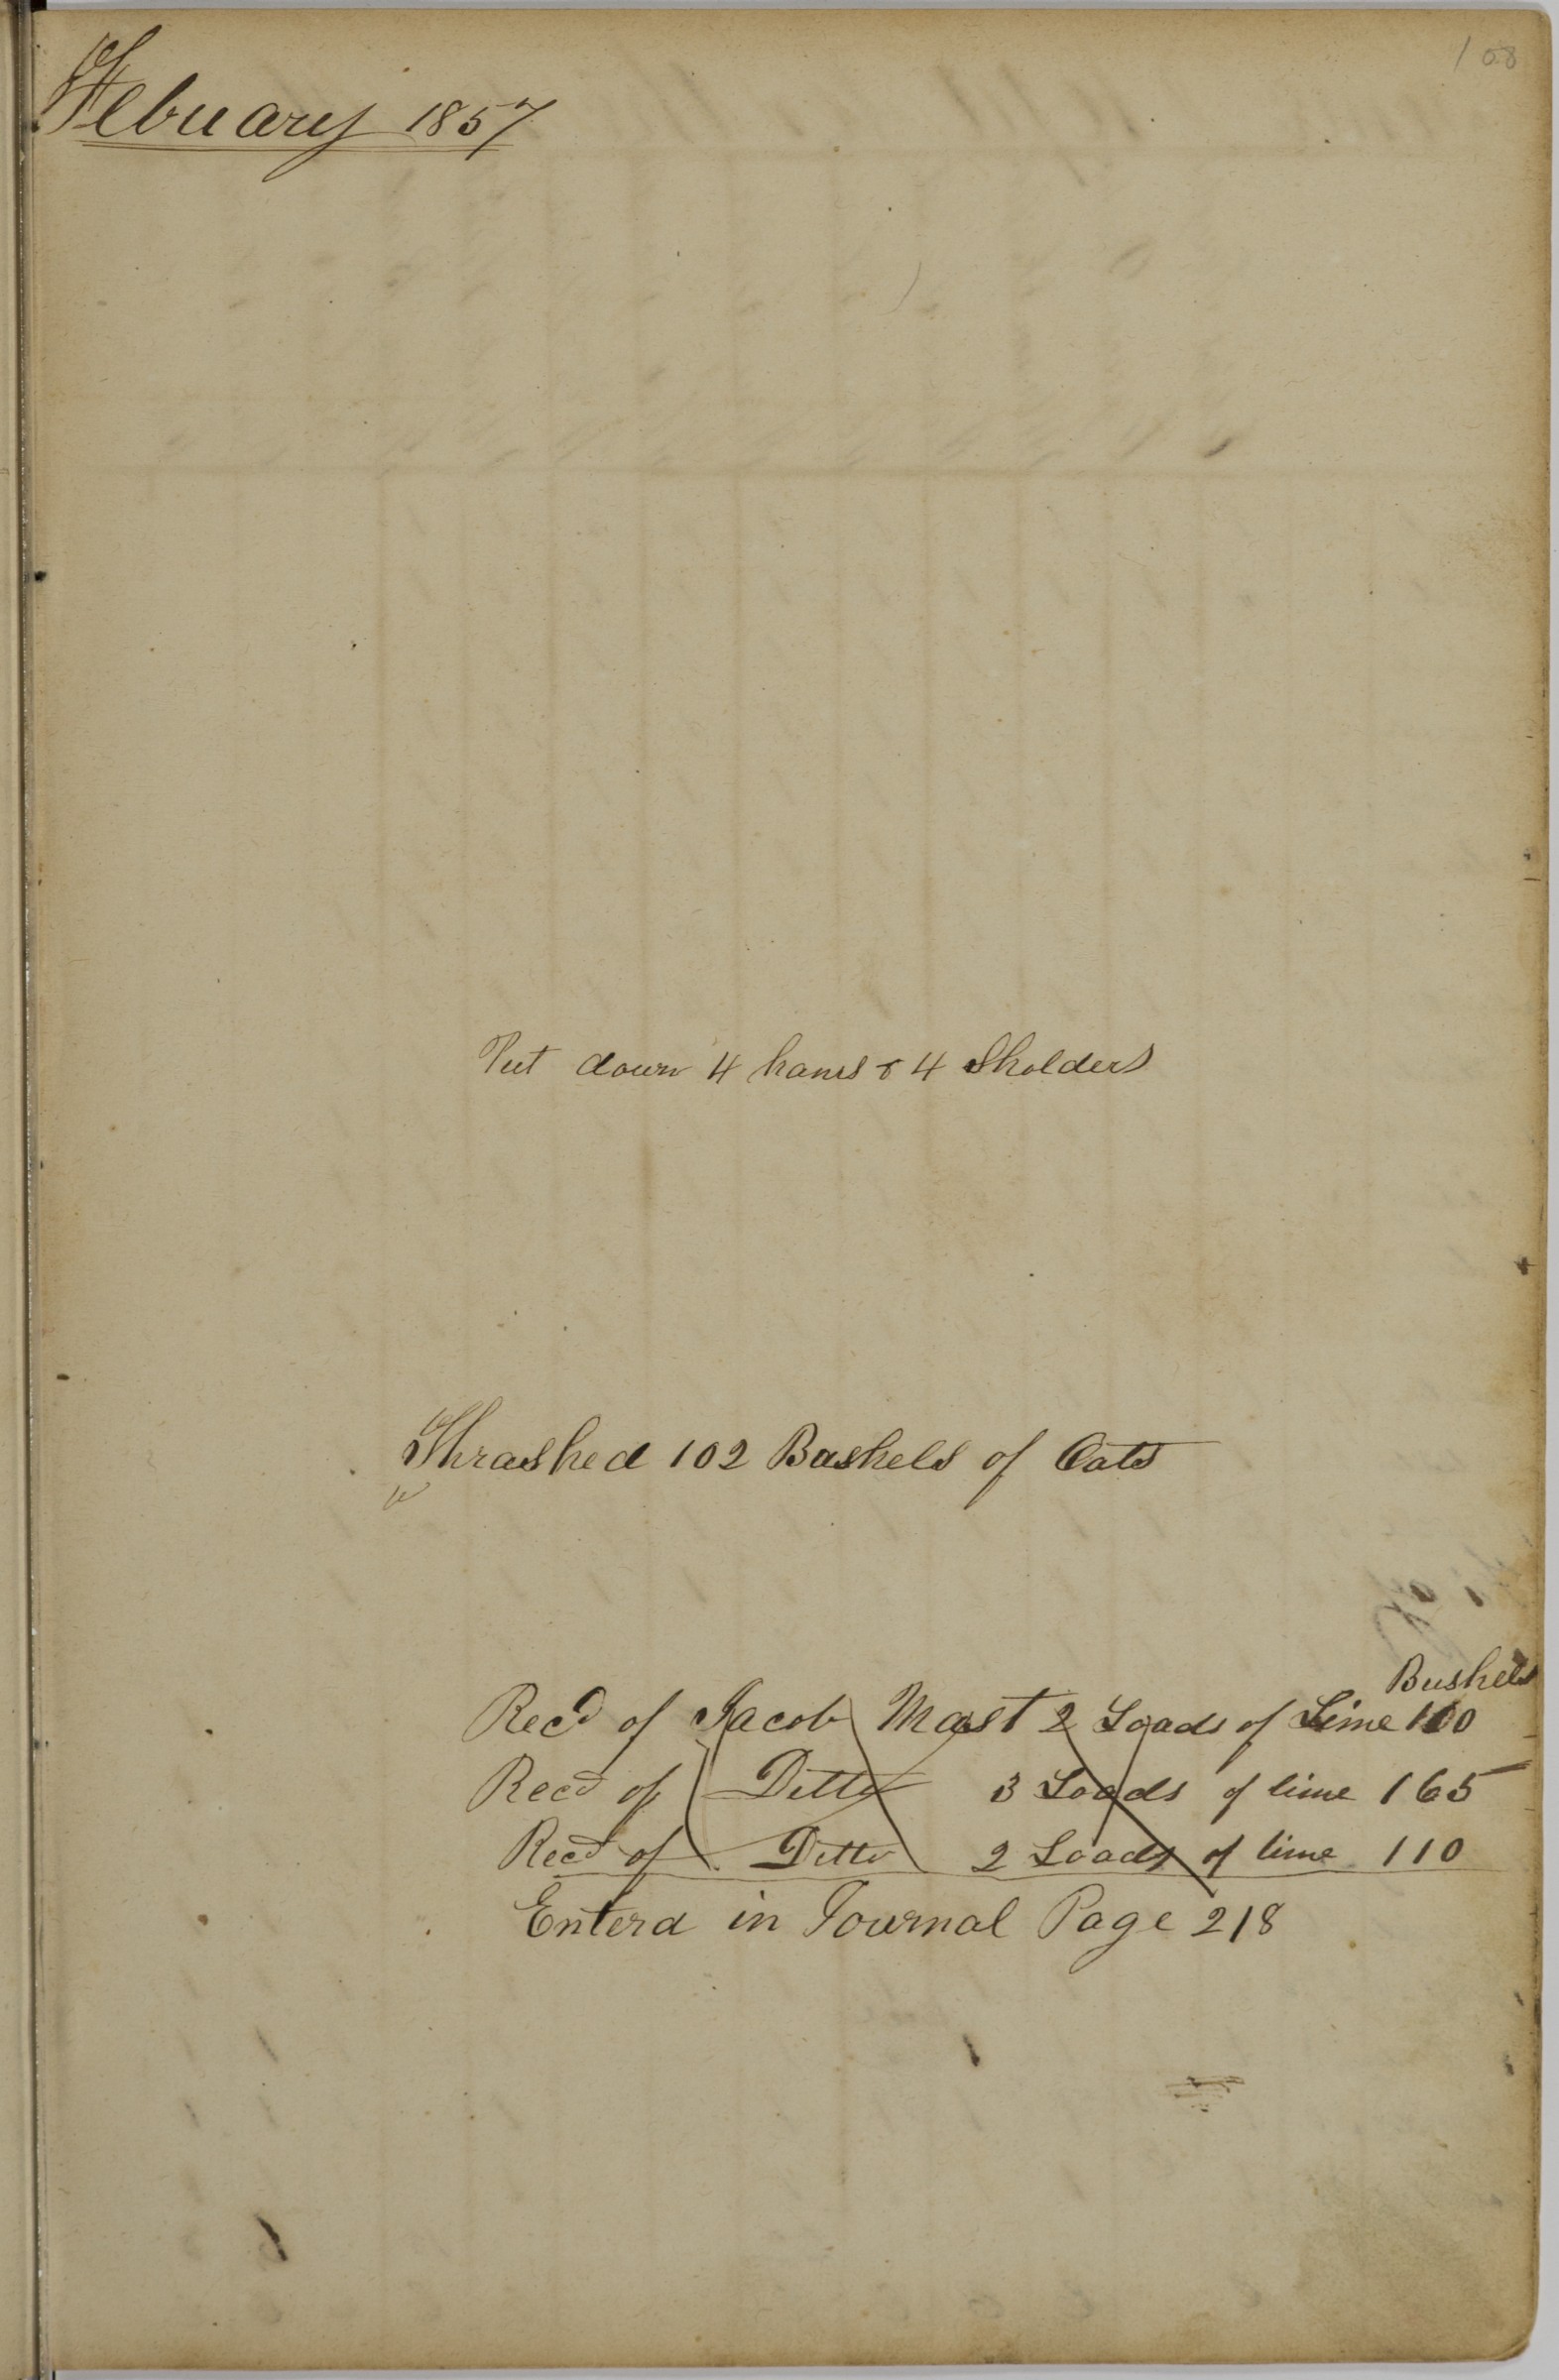 108
Febuary 1857
Put down 4 hams & 4 Sholders
Thrashed 102 Bushels of Oats
Bushels
Recd of Jacob Mast 2 Loads of Lime 110
Recd of Ditto 3 Loads of lime 165
Recd of Ditto 2 Loads of lime 110
Enterd in Journal Page 218